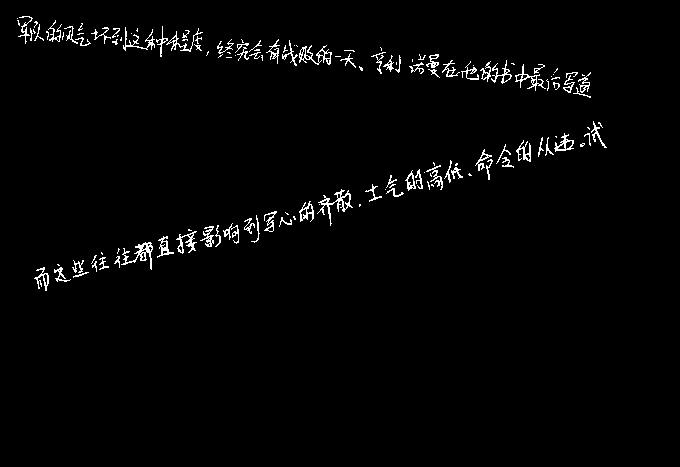 军队的风气坏到这种程度，终究会有战败的一天、亨利诺曼在他的书中最后写道
而这些往往都直接影响到军心的齐散、士气的高低、命令的从违。试